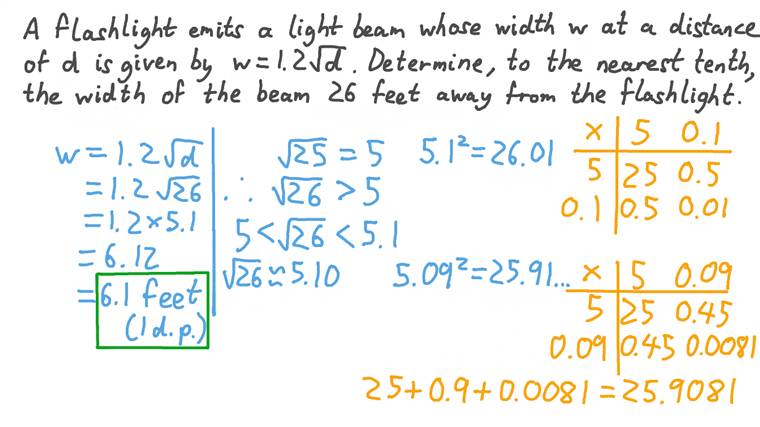 A flashlight emits a light beam whose width w at a distance
of d is given by w=1.2√d. Determine, to the nearest tenth,
the width of the beam 26 feet away from the flashlight.
w=1.2√d
=1.2√26
=1.2×5.1
=6.12
=6.1 feet
(1 d.p.)
√25=5
∴ √26>5
5<√26<5.1
√26≈5.10
5.1²=26.01
5.09²=25.91...
× 5 0.1
5 25 0.5
0.1 0.5 0.01
× 5 0.09
5 25 0.45
0.09 0.45 0.0081
25+0.9+0.0081=25.9081